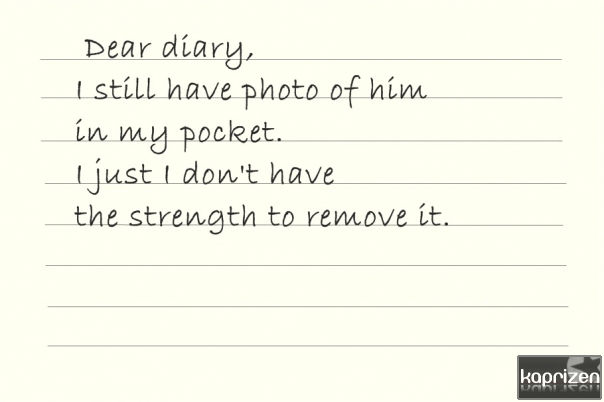 Dear diary,
I still have photo of him
in my pocket.
I just I don't have
the strength to remove it.
kaprizen